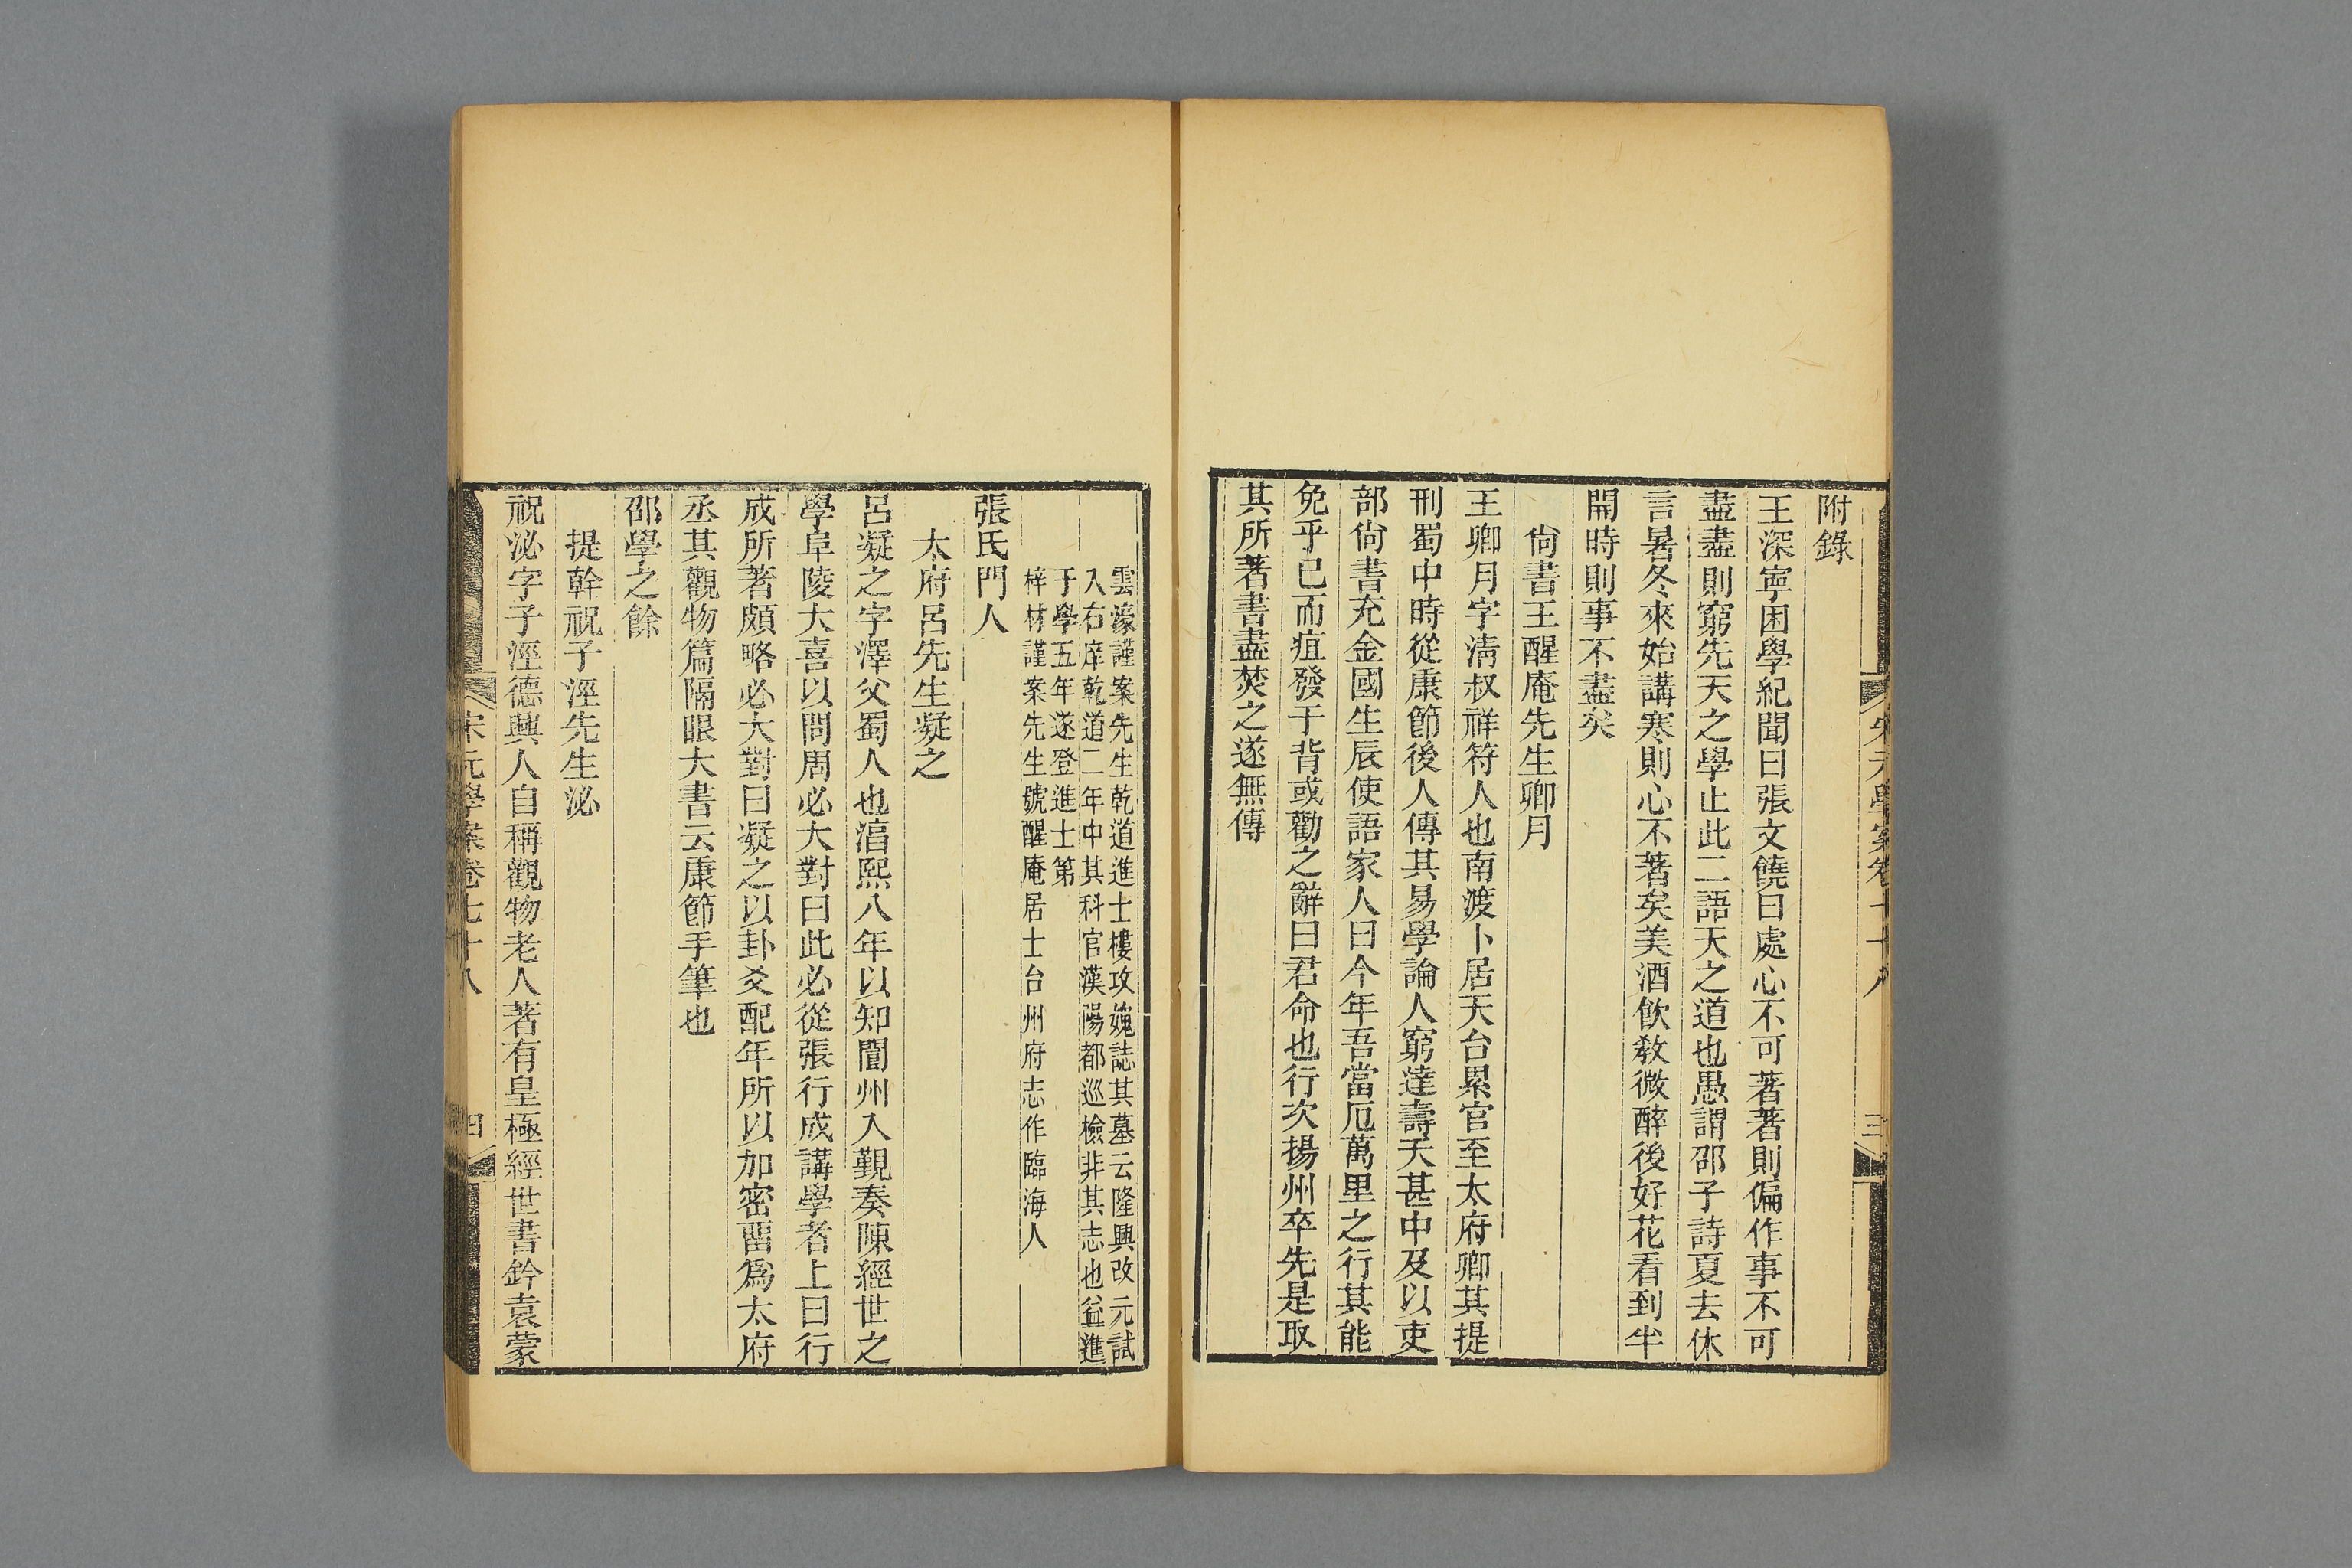 附錄
王深寧困學紀聞曰張文饒曰處心不可著著則偏作事不可
盡盡則窮先天之學止此二語天之道也愚謂邵子詩夏去休
言暑冬來始講寒則心不著矣美酒飲教微醉後好花看到半
開時則事不盡矣
尙書王醒庵先生卿月
王卿月字淸叔祥符人也南渡卜居天台累官至太府卿其提
刑蜀中時從康節後人傳其易學論人窮達壽夭甚中及以吏
部尙書充金國生辰使語家人曰今年吾當厄萬里之行其能
免乎已而疽發于背或勸之辭曰君命也行次揚州卒先是取
其所著書盡焚之遂無傳
雲濠謹案先生乾道進士樓攻媿誌其墓云隆興改元試
入右庠乾道二年中其科官漢陽都巡檢非其志也益進
于學五年遂登進士第
梓材謹案先生號醒庵居士台州府志作臨海人
張氏門人
太府呂先生凝之
呂凝之字澤父蜀人也湻熙八年以知閬州入覲奏陳經世之
學阜陵大喜以問周必大對曰此必從張行成講學者上曰行
成所著頗略必大對曰凝之以卦爻配年所以加密畱爲太府
丞其觀物篇隔眼大書云康節手筆也
邵學之餘
提幹祝子涇先生泌
祝泌字子涇德興人自稱觀物老人著有皇極經世書鈐袁蒙
宋元學案卷七十八
四
三